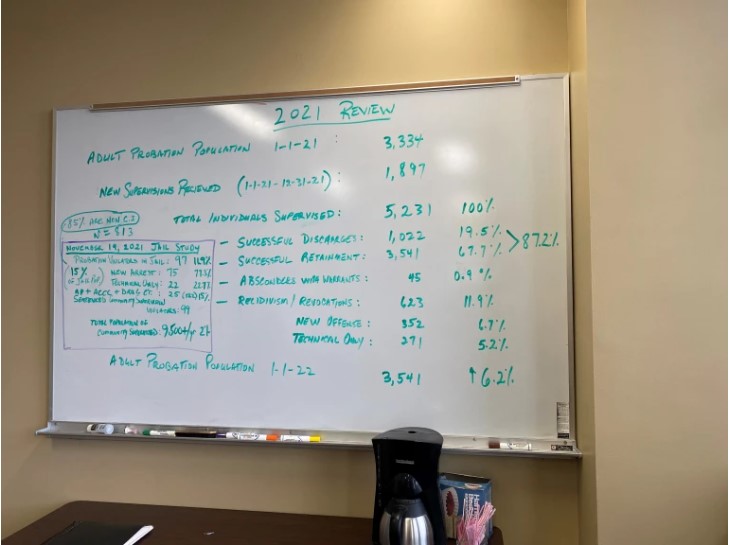 2021 REVIEW
ADULT PROBATION POPULATION 1-1-21 : 3,334
NEW SUPERVISIONS RECEIVED (1-1-21 - 12-31-21) : 1,897
TOTAL INDIVIDUALS SUPERVISED: 5,231 100%
- SUCCESSFUL DISCHARGES: 1,022 19.5%
- SUCCESSFUL RETAINMENT: 3,541 67.7% > 87.2%
- ABSCONDERS WITH WARRANTS: 45 0.9%
- RECIDIVISM/REVOCATIONS: 623 11.9%
NEW OFFENSE: 352 6.7%
TECHNICAL ONLY: 271 5.2%
ADULT PROBATION POPULATION 1-1-22 3,541 ↑6.2%
85% ARE NON
N = 513
NOVEMBER 19, 2021 JAIL STUDY
PROBATION VIOLATORS IN JAIL: 97
15% NEW ARREST: 75
OF JAIL TECHNICAL ONLY: 22
+ ACCC + DRAG CT.: 25
SENTENCED COMMUNITY
VIOLATORS: 99
TOTAL POPULATION OF
COMMUNITY SUPERVISED: 9500+/yr